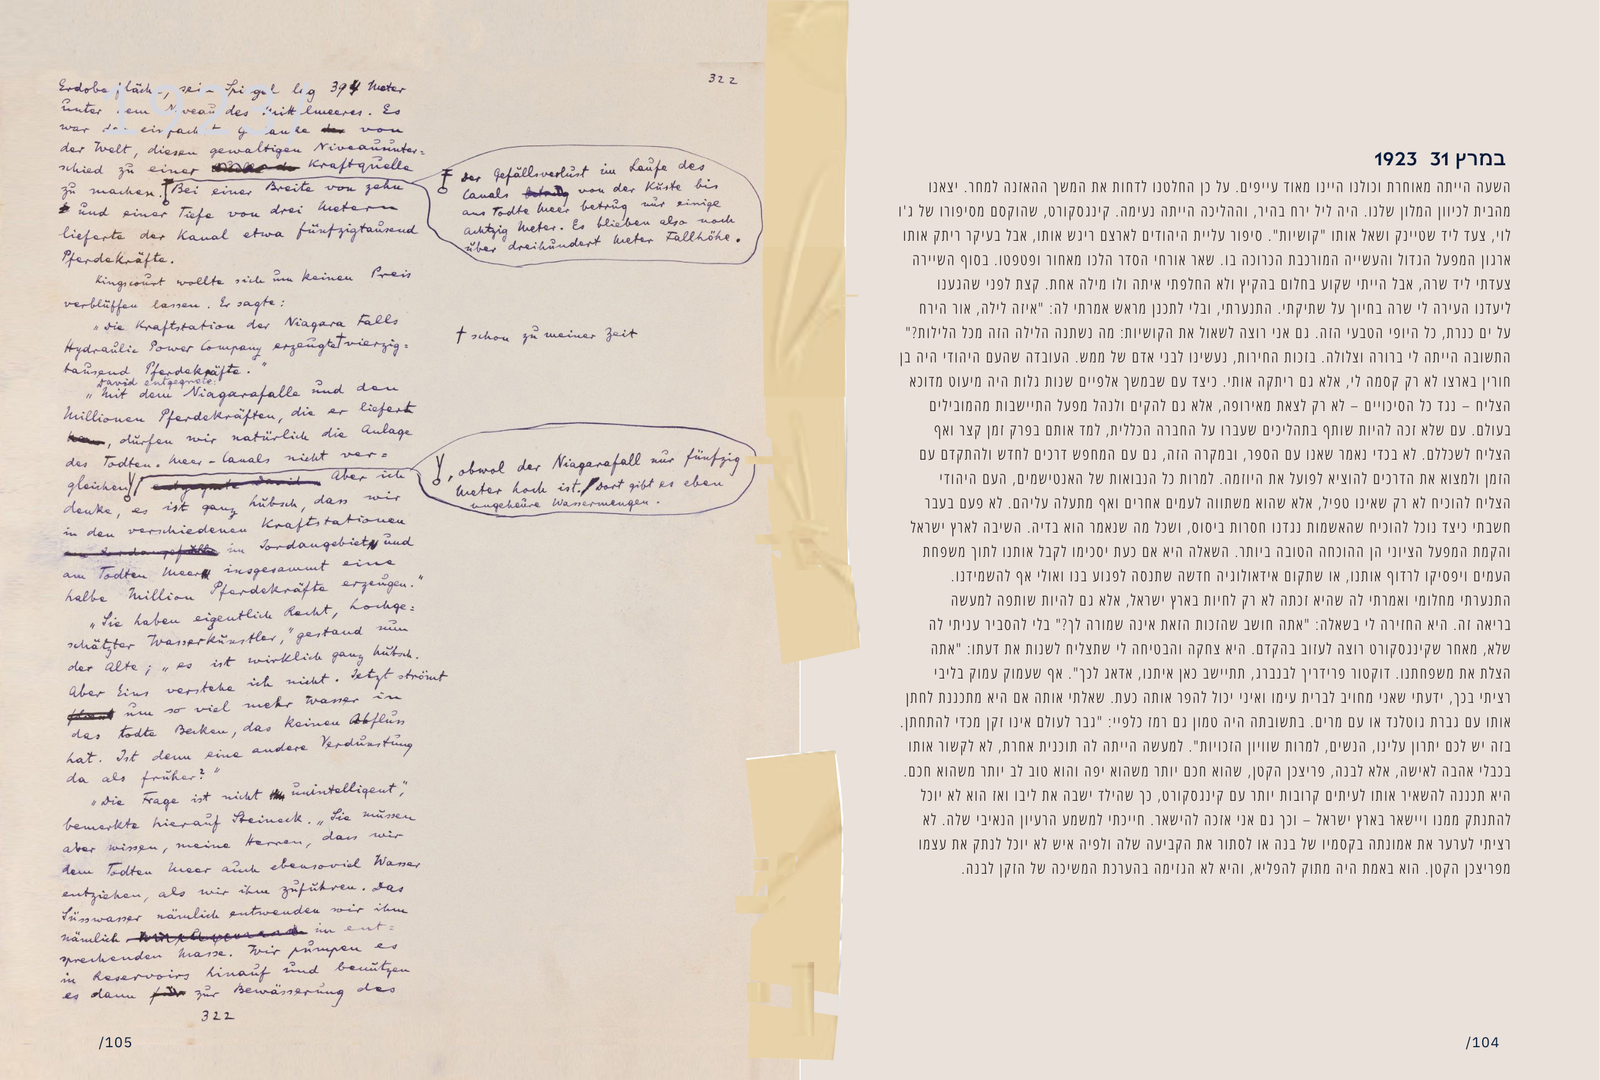 31 במרץ 1923
השעה הייתה מאוחרת וכולנו היינו מאוד עייפים. על כן החלטנו לדחות את המשך ההאזנה למחר. יצאנו
מהבית לכיוון המלון שלנו. היה ליל ירח בהיר, וההליכה הייתה נעימה. קינגסקורט, שהוקסם מסיפורו של ג'ו
לוי, צעד ליד שטיינק ושאל אותו "קושיות". סיפור עליית היהודים לארצם ריגש אותו, אבל בעיקר ריתק אותו
ארגון המפעל הגדול והעשייה המורכבת הכרוכה בו. שאר אורחי הסדר הלכו מאחור ופטפטו. בסוף השיירה
צעדתי ליד שרה, אבל הייתי שקוע בחלום בהקיץ ולא החלפתי איתה ולו מילה אחת. קצת לפני שהגענו
ליעדנו העירה לי שרה בחיוך על שתיקתי. התנערתי, ובלי לתכנן מראש אמרתי לה: "איזה לילה, אור הירח
על ים כנרת, כל היופי הטבעי הזה. גם אני רוצה לשאול את הקושיות: מה נשתנה הלילה הזה מכל הלילות?"
התשובה הייתה לי ברורה וצלולה. בזכות החירות, נעשינו לבני אדם של ממש. העובדה שהעם היהודי היה בן
חורין בארצו לא רק קסמה לי, אלא גם ריתקה אותי. כיצד עם שבמשך אלפיים שנות גלות היה מיעוט מדוכא
הצליח – נגד כל הסיכויים – לא רק לצאת מאירופה, אלא גם להקים ולנהל מפעל התיישבות מהמובילים
בעולם. עם שלא זכה להיות שותף בתהליכים שעברו על החברה הכללית, למד אותם בפרק זמן קצר ואף
הצליח לשכללם. לא בכדי נאמר שאנו עם הספר, ובמקרה הזה, גם עם המחפש דרכים לחדש ולהתקדם עם
הזמן ולמצוא את הדרכים להוציא לפועל את היוזמה. למרות כל הנבואות של האנטישמים, העם היהודי
הצליח להוכיח לא רק שאינו טפיל, אלא שהוא משתווה לעמים אחרים ואף מתעלה עליהם. לא פעם בעבר
חשבתי כיצד נוכל להוכיח שהאשמות נגדנו חסרות ביסוס, ושכל מה שנאמר הוא בדיה. השיבה לארץ ישראל
והקמת המפעל הציוני הן ההוכחה הטובה ביותר. השאלה היא אם כעת יסכימו לקבל אותנו לתוך משפחת
העמים ויפסיקו לרדוף אותנו, או שתקום אידאולוגיה חדשה שתנסה לפגוע בנו ואולי אף להשמידנו.
התנערתי מחלומי ואמרתי לה שהיא זכתה לא רק לחיות בארץ ישראל, אלא גם להיות שותפה למעשה
בריאה זה. היא החזירה לי בשאלה: "אתה חושב שהזכות הזאת אינה שמורה לך?" בלי להסביר עניתי לה
שלא, מאחר שקינגסקורט רוצה לעזוב בהקדם. היא צחקה והבטיחה לי שתצליח לשנות את דעתו: "אתה
הצלת את משפחתנו. דוקטור פרידריך לבנברג, תתיישב כאן איתנו, אדאג לכך". אף שעמוק עמוק בליבי
רציתי בכך, ידעתי שאני מחויב לברית עימו ואיני יכול להפר אותה כעת. שאלתי אותה אם היא מתכננת לחתן
אותו עם גברת גוטלנד או עם מרים. בתשובתה היה טמון גם רמז כלפיי: "גבר לעולם אינו זקן מכדי להתחתן.
בזה יש לכם יתרון עלינו, הנשים, למרות שוויון הזכויות". למעשה הייתה לה תוכנית אחרת, לא לקשור אותו
בכבלי אהבה לאישה, אלא לבנה, פריצכן הקטן, שהוא חכם יותר משהוא יפה והוא טוב לב יותר משהוא חכם.
היא תכננה להשאיר אותו לעיתים קרובות יותר עם קינגסקורט, כך שהילד ישבה את ליבו ואז הוא לא יוכל
להתנתק ממנו ויישאר בארץ ישראל – וכך גם אני אזכה להישאר. חייכתי למשמע הרעיון הנאיבי שלה. לא
רציתי לערער את אמונתה בקסמיו של בנה או לסתור את הקביעה שלה ולפיה איש לא יוכל לנתק את עצמו
מפריצכן הקטן. הוא באמת היה מתוק להפליא, והיא לא הגזימה בהערכת המשיכה של הזקן לבנה.
/104
322
Erdoberfläche, sein Spiegel lag 394 Meter
unter dem Niveau des Mittelmeeres. Es
war der einfachste Gedanke von
der Welt, diesen gewaltigen Niveauunter=
schied zu einer Kraftquelle
zu machen. Bei einer Breite von zehn
und einer Tiefe von drei Metern
lieferte der Kanal etwa fünfzigtausend
Pferdekräfte.
der Gefällsverlust im Laufe des
Canals von der Küste bis
ans Todte Meer betrug nur einige
achtzig Meter. Es blieben also noch
über dreihundert Meter Fallhöhe.
Kingscourt wollte sich um keinen Preis
verblüffen lassen. Er sagte:
"Die Kraftstation der Niagara Falls
Hydraulic Power Company erzeugte vierzig=
tausend Pferdekräfte."
† schon zu meiner Zeit
David entgegnete:
"Mit dem Niagarafalle und den
Millionen Pferdekräften, die er liefert
, dürfen wir natürlich die Anlage
des Todten-Meer-Canals nicht ver=
gleichen Aber ich
denke, es ist ganz hübsch, dass wir
in den verschiedenen Kraftstationen
im Jordangebiet und
am Todten Meer insgesammt eine
halbe Million Pferdekräfte erzeugen."
, obwol der Niagarafall nur fünfzig
Meter hoch ist. Dort gibt es eben
ungeheure Wassermengen.
"Sie haben eigentlich Recht, hochge=
schätzter Wasserkünstler," gestand nun
der Alte; "es ist wirklich ganz hübsch.
Aber Eins verstehe ich nicht. Jetzt strömt
um so viel mehr Wasser in
das todte Becken, das keinen Abfluss
hat. Ist denn eine andere Verdunstung
da als früher?"
"Die Frage ist nicht unintelligent",
bemerkte hierauf Steineck. "Sie müssen
aber wissen, meine Herren, dass wir
dem Todten Meer auch ebensoviel Wasser
entziehen, als wir ihm zuführen. Das
Süsswasser nämlich entwenden wir ihm
nämlich im ent=
sprechenden Masse. Wir pumpen es
in Reservoirs hinauf und benützen
es dann zur Bewässerung des
322
/105